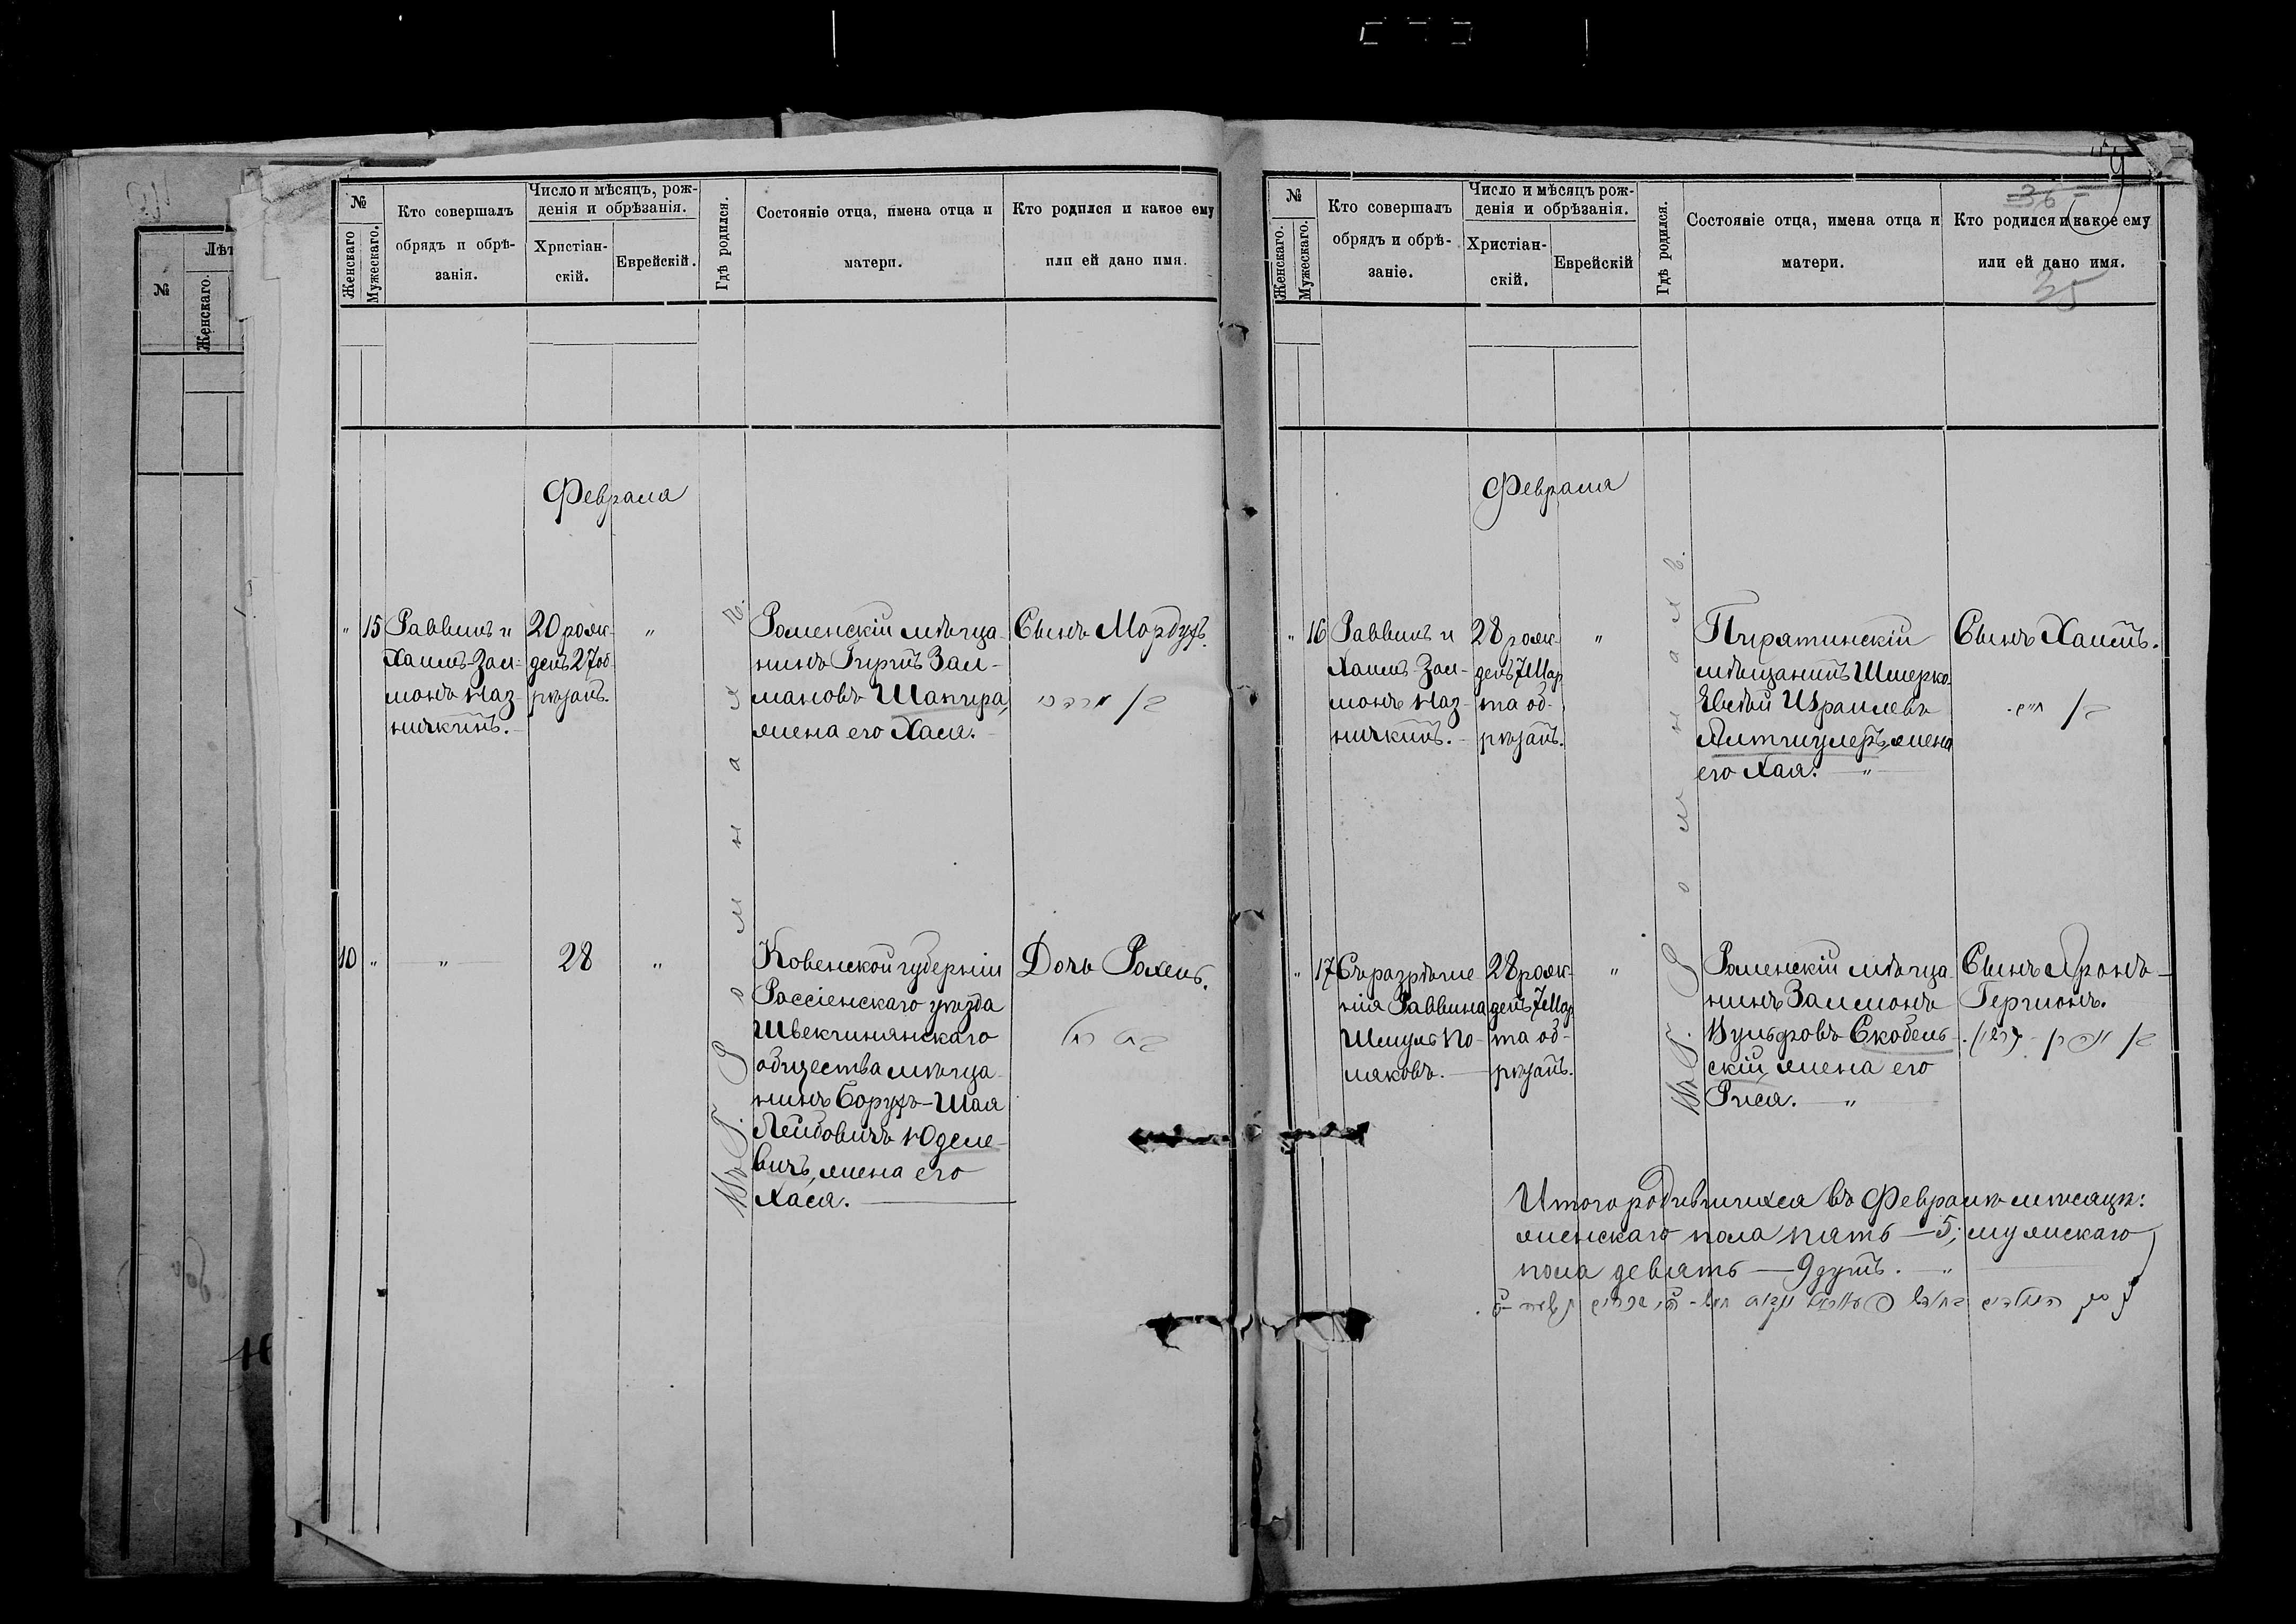 №
Женскаго
Мужескаго.
Кто совершалъ
обрядъ и обрѣ-
занія.
Число и мѣсяцъ, рож-
денія и обрѣзанія.
Христіан-
скій.
Еврейскій.
Гдѣ родился.
Состояніе отца, имена отца и
матери.
Кто родился и какое ему
или ей дано имя.
Февраля
"
15
Раввинъ и
Хаимъ-Зал-
монъ Маз-
ничкинъ.
20 рож-
денъ 27 об-
рѣзанъ.
"
Роменскій мѣща-
нинъ Гиршъ Зал-
мановъ Шапира,
жена его Хая.
Сынъ Мордухъ.
בן מרדכי
10
"
"
28
"
Ковенской губерніи
Россіенскаго уѣзда
Швекшнянскаго
общества мѣща-
нинъ Борухъ-Шая
Лейбовичъ Юделе-
вичъ, жена его
Хася.
Дочь Рохель.
בת רחל
Въ Г. Ромнахъ.
№
Женскаго.
Мужескаго.
Кто совершалъ
обрядъ и обрѣ-
заніе.
Число и мѣсяцъ рож-
денія и обрѣзанія.
Христіан-
скій.
Еврейскій
Гдѣ родился.
Состояніе отца, имена отца и
матери.
Кто родился и какое ему
или ей дано имя.
36
35
Февраля
"
16
Раввинъ и
Хаимъ-Зал-
монъ Маз-
ничкинъ.
28 рож-
денъ 7 Мар-
та об-
рѣзанъ.
"
Пирятинскій
мѣщанинъ Шмерко-
Евсѣй Израилевъ
жена
его Хая. "
Сынъ Хаимъ.
בן חיים.
"
17
Съ разрѣше-
нія Раввина
Шмуль По-
ляковъ.
28 рож-
денъ 7 Мар-
та об-
рѣзанъ.
"
Роменскій мѣща-
нинъ Залмонъ
Вульфовъ Скобель-
скій, жена его
Рися. "
Сынъ Аронъ-
Гершонъ.
בן אהרן-גרשון.
Въ Г. Ромнахъ.
Итого родившихся въ Февралѣ мѣсяцѣ:
женскаго пола пять — 5, мужскаго
пола девять — 9 душъ. "